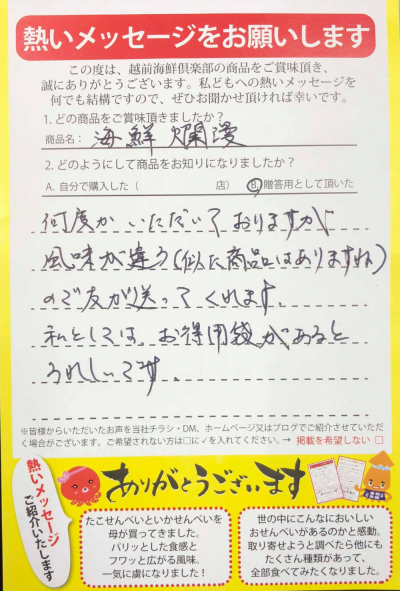 熱いメッセージをお願いします
この度は、越前海鮮倶楽部の商品をご賞味頂き、
誠にありがとうございます。私どもへの熱いメッセージを
何でも結構ですので、ぜひお聞かせ頂ければ幸いです。
1. どの商品をご賞味頂きましたか?
商品名: 海鮮爛漫
2. どのようにして商品をお知りになりましたか?
A. 自分で購入した ( 店) B. 贈答用として頂いた
何度かいただいておりますが
風味が違う(似た商品はありますね)
ので友が送ってくれます。
私としては、お得用袋があると
うれしいです。
※皆様からいただいたお声を当社チラシ・DM、ホームページ又はブログでご紹介させていただ
く場合がございます。ご希望されない方は□に✓を入れてください。→ 掲載を希望しない □
熱いメッセージ
ご紹介いたします
ありがとうございます
たこせんべいといかせんべいを
母が買ってきました。
パリッとした食感と
フワッと広がる風味。
一気に虜になりました!
世の中にこんなにおいしい
おせんべいがあるのかと感動。
取り寄せようと調べたら他にも
たくさん種類があって、
全部食べてみたくなりました。